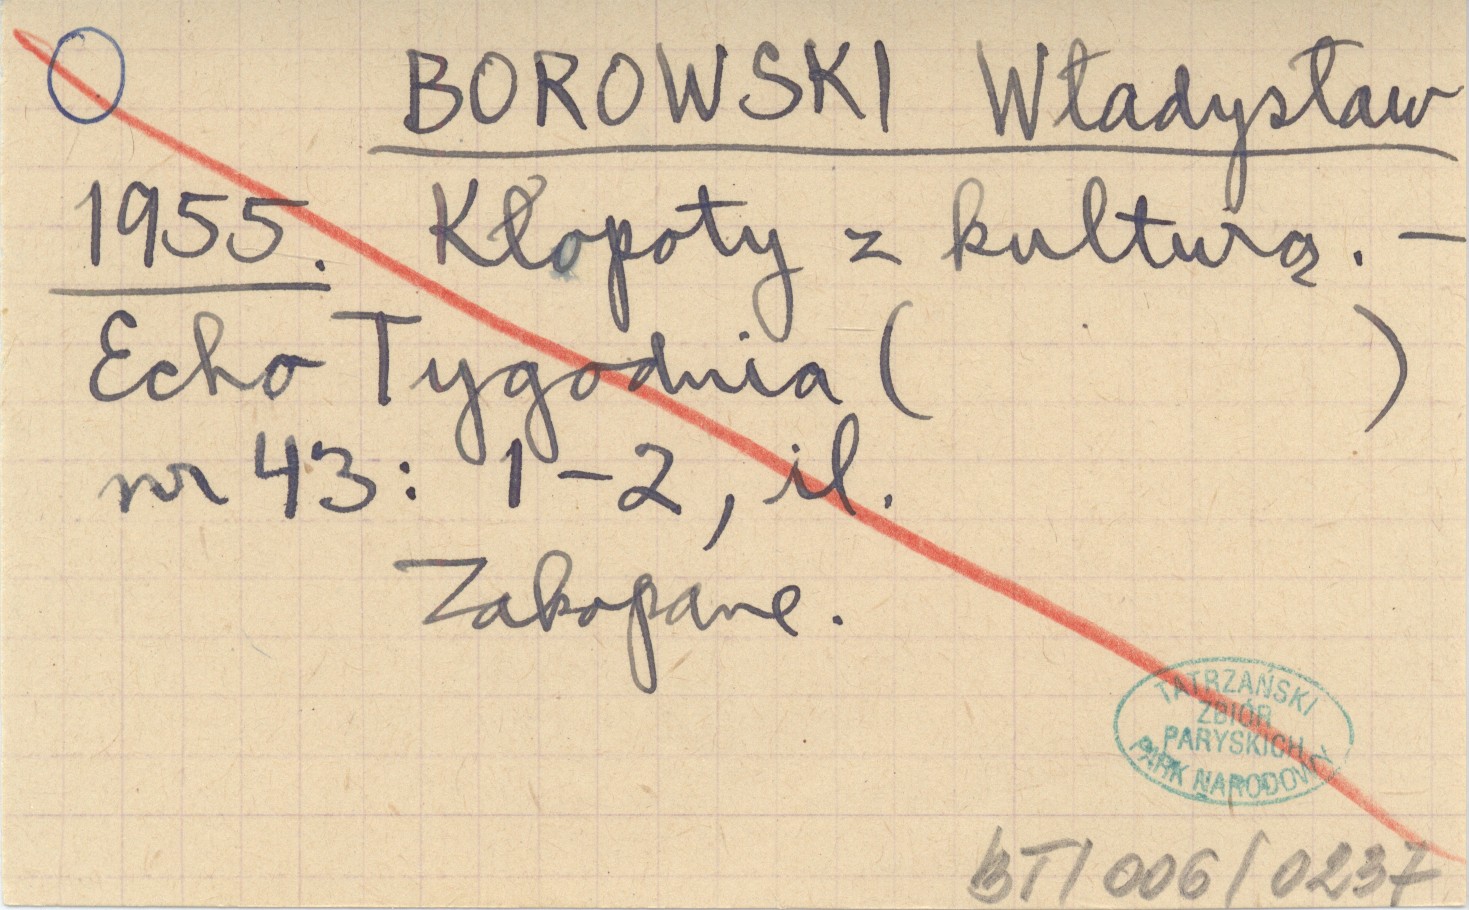 BOROWSKI Władysław
1955. Kłopoty z kulturą. –
Echo Tygodnia (            )
nr 43: 1–2, il.
Zakopane.
TATRZAŃSKI
ZBIÓR
PARYSKICH
PARK NARODOWY
BT/006/0237